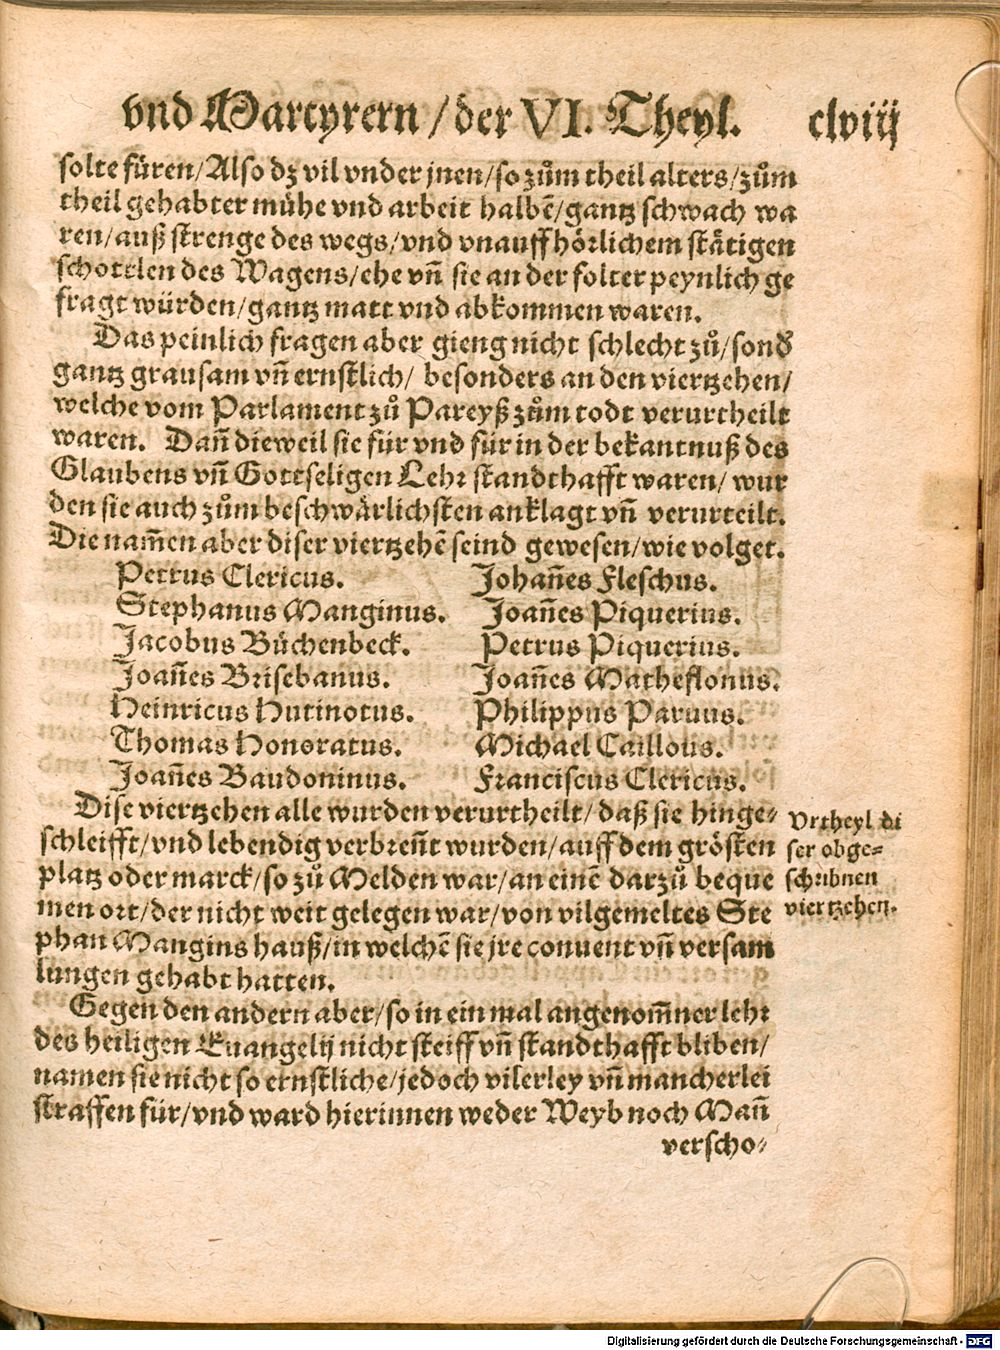 vnd Martyrern / der VI. Theyl. clviij
solte füren/Also dz vil vnder jnen/so zům theil alters/zům
theil gehabter mühe vnd arbeit halbē/gantz schwach wa
ren/auß strenge des wegs/vnd vnauffhörlichem stätigen
schottlen des Wagens/ehe vn̄ sie an der folter peynlich ge
fragt würden/gantz matt vnd abkommen waren.
Das peinlich fragen aber gieng nicht schlecht zů/sond̕
gantz grausam vn̄ ernstlich/ besonders an den viertzehen/
welche vom Parlament zů Pareyß zům todt verurtheilt
waren. Dan̄ dieweil sie für vnd für in der bekantnuß des
Glaubens vn̄ Gottseligen Lehr standthafft waren/ wur
den sie auch zům beschwärlichsten anklagt vn̄ verurteilt.
Die nam̄en aber diser viertzehē seind gewesen/wie volget.
Petrus Clericus. Johan̄es Fleschus.
Stephanus Manginus. Joan̄es Piquerius.
Jacobus Bůchenbeck. Petrus Piquerius.
Joan̄es Brisebanus. Joan̄es Matheflonus.
Heinricus Hutinotus. Philippus Paruus.
Thomas Honoratus. Michael Caillous.
Joan̄es Baudoninus. Franciscus Clericus.
Dise viertzehen alle wurden verurtheilt/ daß sie hinge-
schleifft/vnd lebendig verbren̄t wurden/auff dem grösten
platz oder marck/so zů Melden war/an einē darzů beque
men ort/der nicht weit gelegen war/von vilgemeltes Ste
phan Mangins hauß/in welchē sie jre conuent vn̄ versam
lungen gehabt hatten.
Vrtheyl di
ser obge-
schribnen
viertzehen.
Gegen den andern aber/so in ein mal angenom̄ner lehr
des heiligen Euangelij nicht steiff vn̄ standthafft bliben/
namen sie nicht so ernstliche/jedoch vilerley vn̄ mancherlei
straffen für/vnd ward hierinnen weder Weyb noch Man̄
verscho-
Digitalisierung gefördert durch die Deutsche Forschungsgemeinschaft - DFG